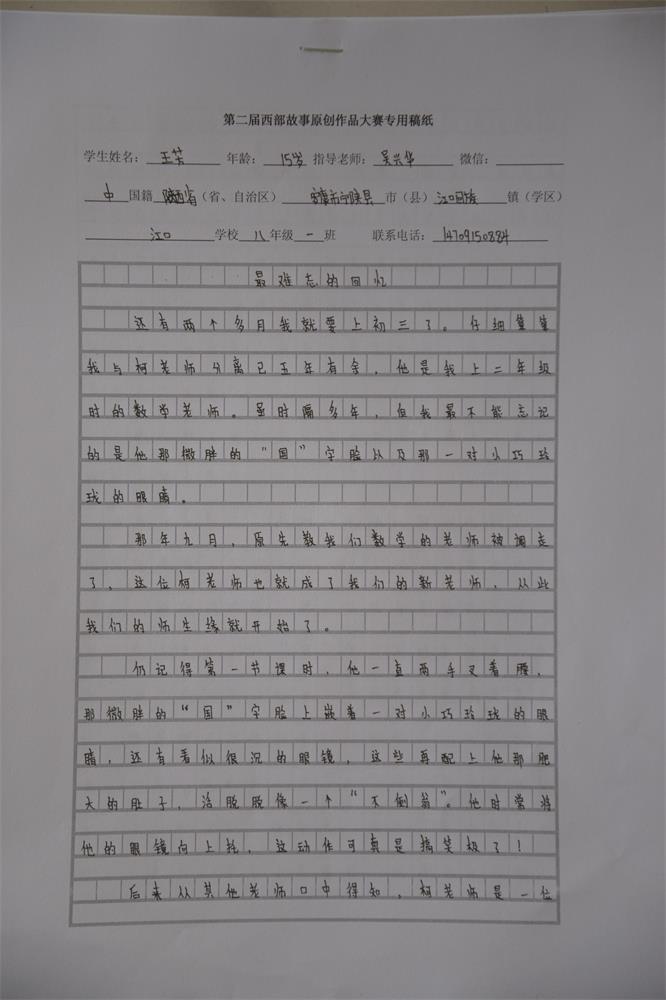 第二届西部故事原创作品大赛专用稿纸
学生姓名： 王芳 年龄： 15岁 指导老师： 吴兴华 微信：
中 国籍 陕西省（省、自治区） 安康市宁陕县 市（县） 江口回族 镇（学区）
江口 学校 八 年级 一 班 联系电话： 14709150884
最难忘的回忆
还有两个多月我就要上初三了。仔细算算
我与柯老师分离已五年有余，他是我上二年级
时的数学老师。虽时隔多年，但我最不能忘记
的是他那微胖的“国”字脸以及那一对小巧玲
珑的眼睛。
那年九月，原先教我们数学的老师被调走
了，这位柯老师也就成了我们的新老师，从此
我们的师生缘就开始了。
仍记得第一节课时，他一直两手叉着腰，
那微胖的“国”字脸上嵌着一对小巧玲珑的眼
睛，还有看似很沉的眼镜，这些再配上他那肥
大的肚子，活脱脱像一个“不倒翁”。他时常将
他的眼镜向上托，这动作可真是搞笑极了！
后来从其他老师口中得知，柯老师是一位